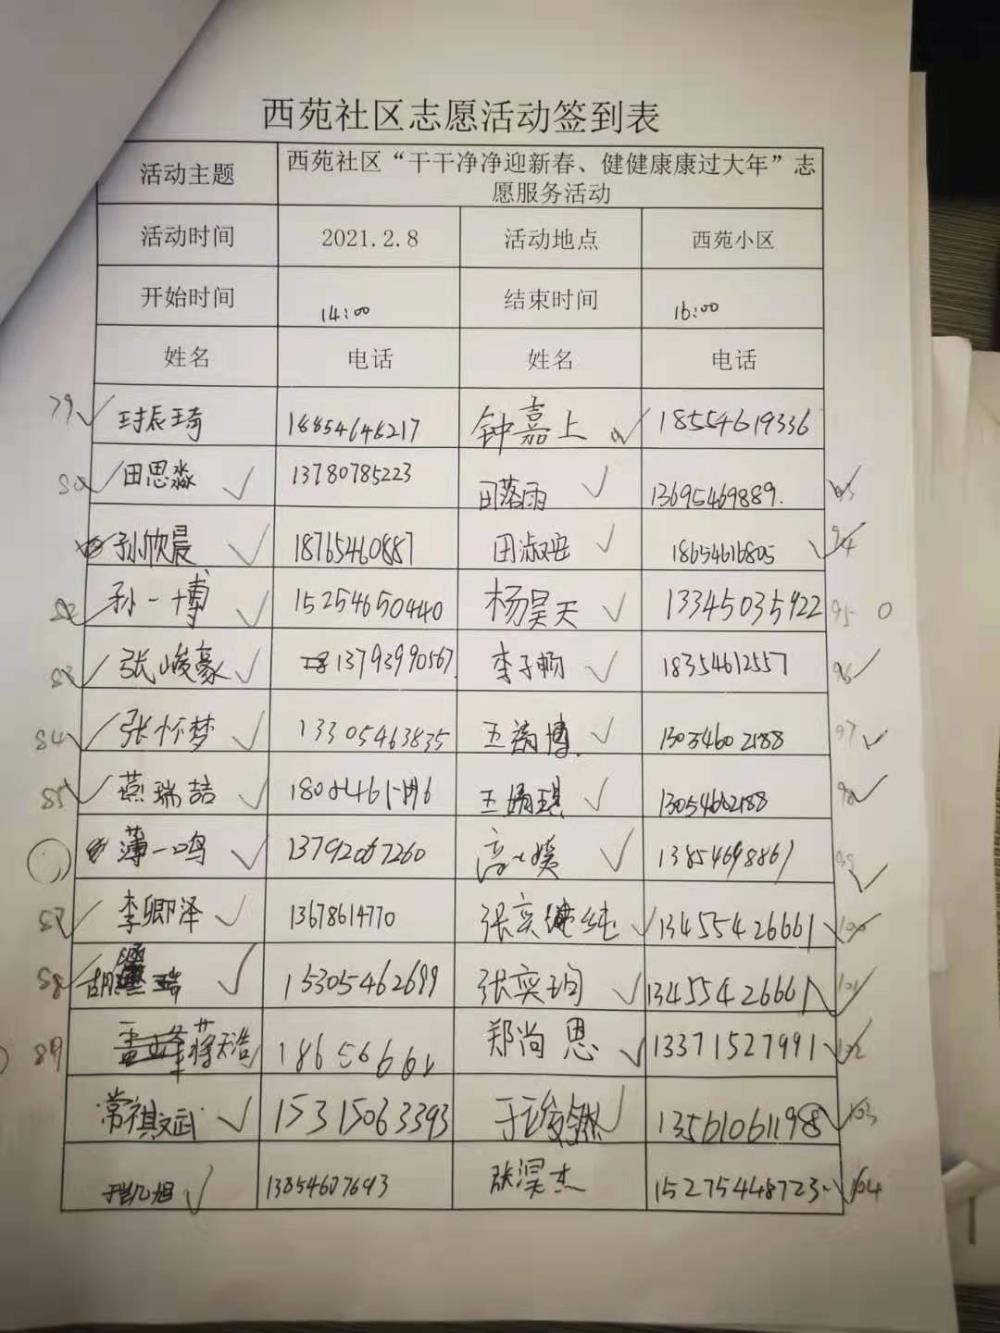 西苑社区志愿活动签到表
活动主题 西苑社区“干干净净迎新春、健健康康过大年”志
愿服务活动
活动时间 2021.2.8 活动地点 西苑小区
开始时间 14:00 结束时间 16:00
姓名 电话 姓名 电话
79 18854648217 钟嘉上 18554619336
80 田思淼 13780785223 田落雨 13695469889.
孙欣晨 18765460887 田淑 18654616805 94
82 孙一博 15254650440 杨昊天 13345035922 95 0
83 张峻豪 13793990567 李子畅 18354612557 96
84 张怀梦 13305463835 王 博 13054602188 97
85 燕瑞喆 王 琪 13054602188 98
薄一鸣 13792067260 高 媛 13854698861 99
87 李卿泽 13678614770 张奕 纯 13455426661 100
88 胡 瑞 15305462699 张奕均 13455426661 101
89 蒋天浩 郑尚恩 13371527991 102
常祺斌 15315063393 于 13561061198 103
凯旭 13854607693 张淏杰 15275448723 104